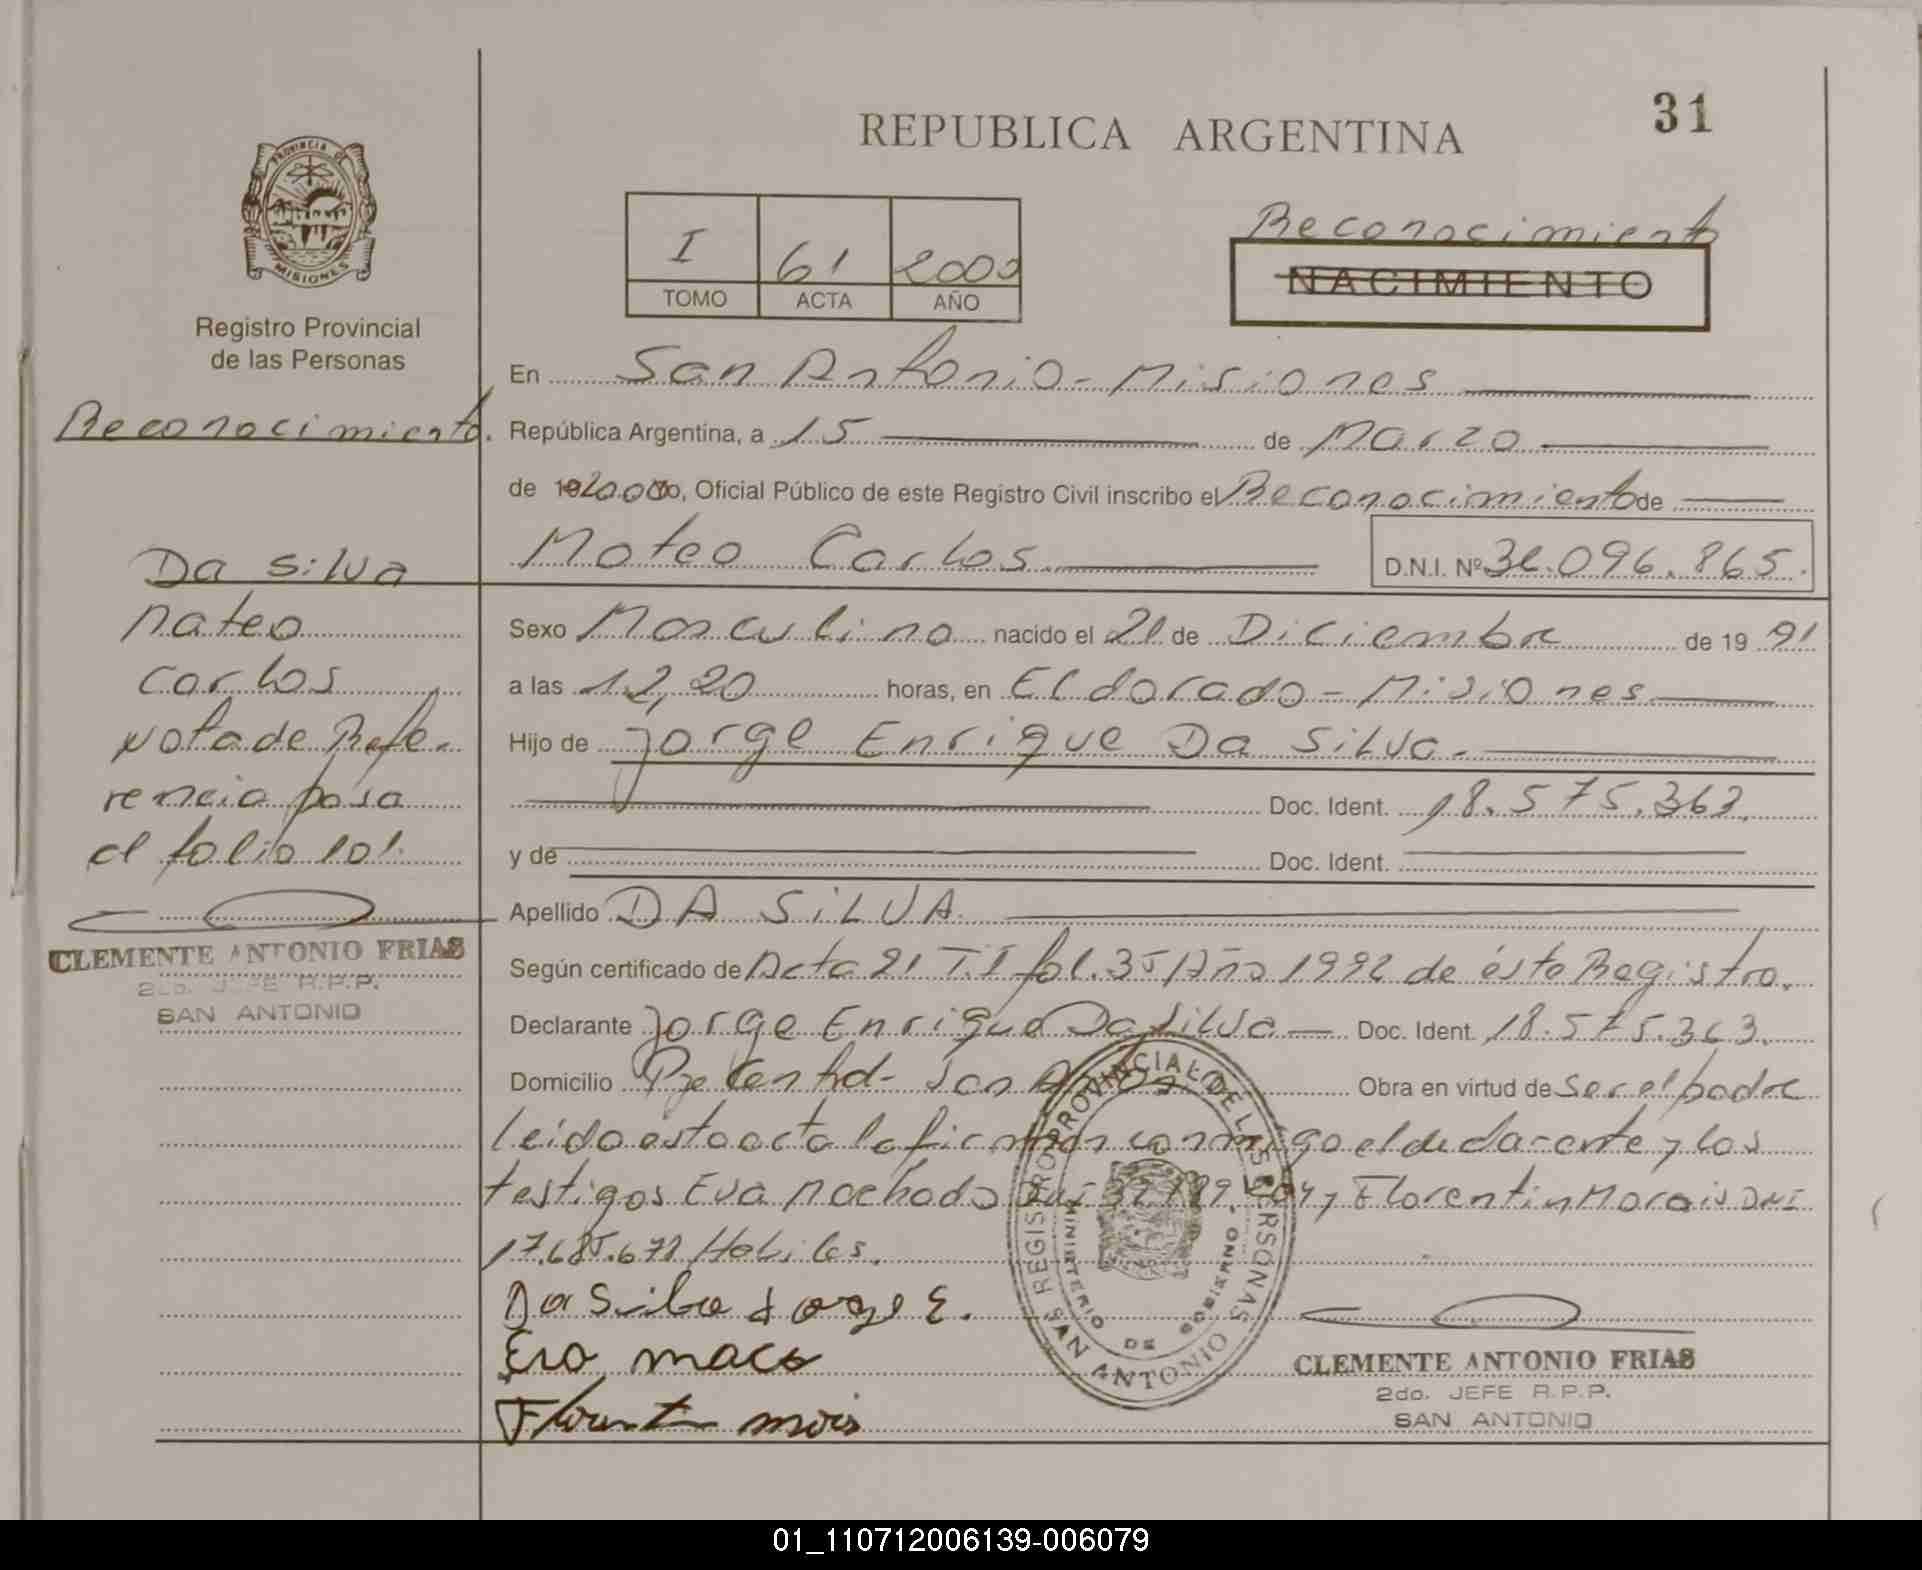 31
REPUBLICA ARGENTINA
PROVINCIA DE
MISIONES
Registro Provincial
de las Personas
I 61 2000
TOMO ACTA AÑO
Reconocimiento
NACIMIENTO
Reconocimiento.
En San Antonio - Misiones
República Argentina, a 15 de Marzo
de 2000 yo, Oficial Público de este Registro Civil inscribo el Reconocimiento de
Mateo Carlos D.N.I. Nº 36.096.865.
Da Silva
Mateo
Carlos
Nota de Refe-
rencia pasa
al folio 101.
CLEMENTE ANTONIO FRIAS
2do. JEFE R.P.P.
SAN ANTONIO
Sexo Masculino nacido el 21 de Diciembre de 19 91
a las 12,20 horas, en Eldorado - Misiones
Hijo de Jorge Enrique Da Silva.
Doc. Ident. 18.575.363.
y de Doc. Ident.
Apellido DA SILVA
Según certificado de Acta 21 T.I fol. 35 Año 1992 de ésto Registro.
Declarante Jorge Enrique Da Silva Doc. Ident. 18.575.363.
Domicilio San Obra en virtud de ser el padre
leído esta acta la firman conmigo el declarante y los
testigos Eva Machado y Florentin Morais DNI
17.685.671 Habiles.
Da Silva Jorge E.
REGISTRO PROVINCIAL DE LAS PERSONAS
MINISTERIO DE GOBIERNO
SAN ANTONIO
CLEMENTE ANTONIO FRIAS
2do. JEFE R.P.P.
SAN ANTONIO
01_110712006139-006079